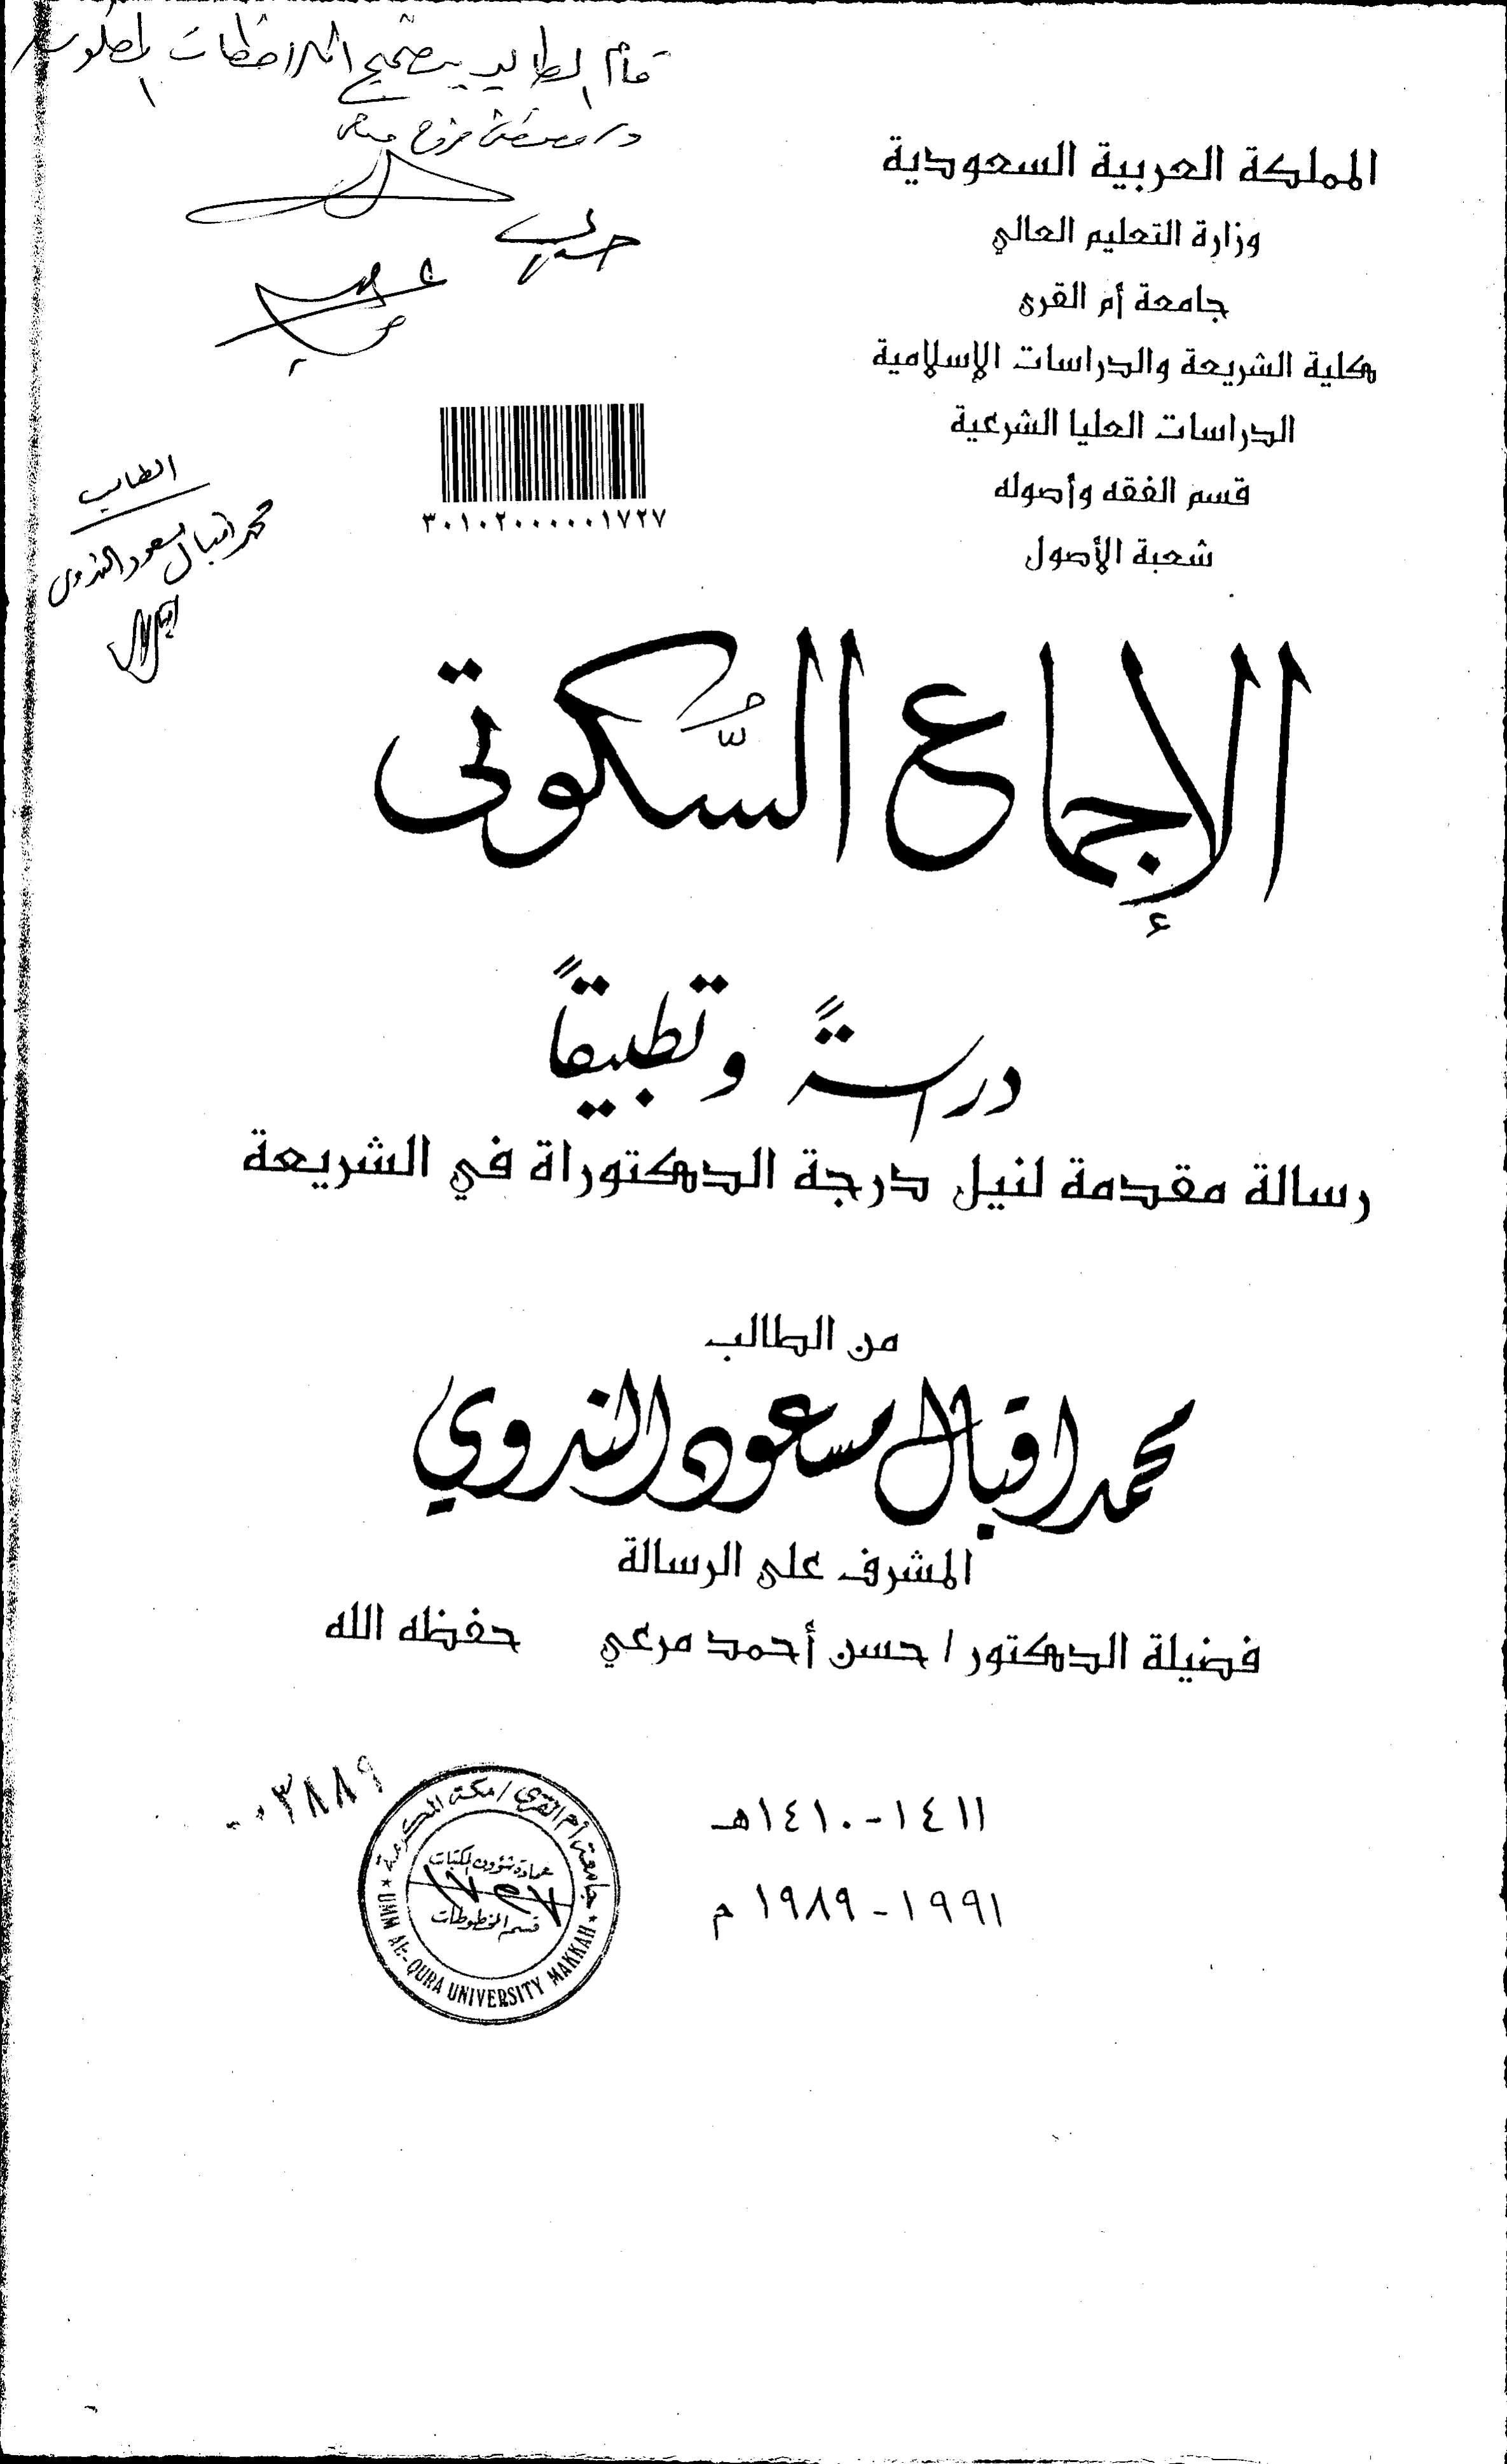 قام الطالب بتصحيح الملاحظات المطلوبة
المملكة العربية السعودية
وزارة التعليم العالي
جامعة أم القرى
كلية الشريعة والدراسات الإسلامية
الدراسات العليا الشرعية
قسم الفقه وأصوله
شعبة الأصول
٣٠١٠٢٠٠٠٠٠١٧٢٧
الطالب
محمد اقبال مسعود الندوي
الإجماع السُّكوتى
دراسةً وتطبيقاً
رسالة مقدمة لنيل درجة الدكتوراة في الشريعة
من الطالب
محمد اقبال مسعود الندوي
المشرف على الرسالة
فضيلة الدكتور / حسن أحمد مرعي حفظه الله
١٤١٠-١٤١١هـ
١٩٨٩-١٩٩١ م
٠٠٣٨٨٩
جامعة أم القرى / مكة المكرمة
عمادة شؤون المكتبات
قسم المخطوطات
UMM AL-QURA UNIVERSITY MAKKAH